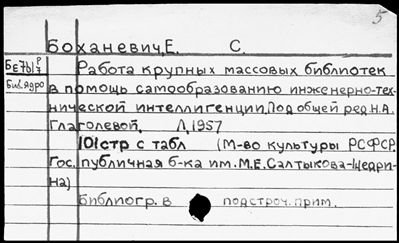 5
Боханевич, Е. С.
Бе781 Р/7 Работа крупных массовых библиотек
Биб. ядро в помощь самообразованию инженерно-тех-
нической интеллигенции. Под общей ред Н.А.
Глаголевой. Л, 1957
101стр с табл (М-во культуры РСФСР.
Гос. публичная б-ка им. М.Е. Салтыкова-Щедри-
на)
Библиогр. в подстроч. прим.